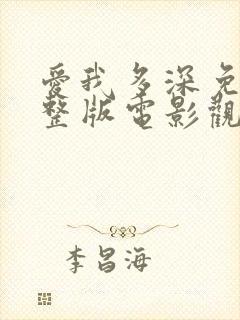 愛我多深免
整版電影觀
李昌海